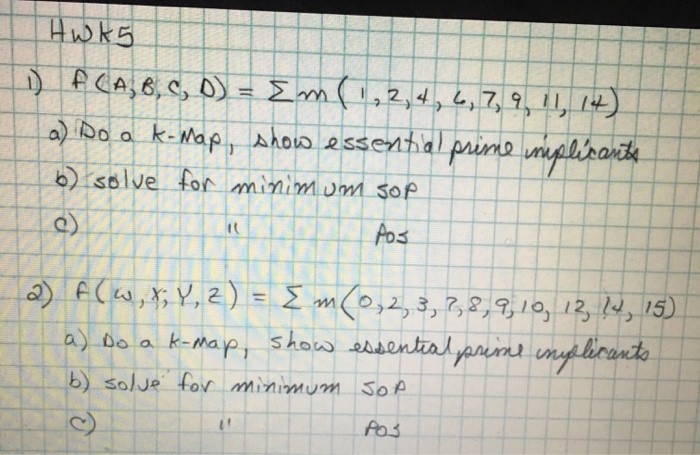 HWK5
1) f(A,B,C,D) = Σm(1,2,4,6,7,9,11,14)
a) Do a K-Map, show essential prime implicants
b) solve for minimum SOP
c) " POS
2) f(W,X,Y,Z) = Σm(0,2,3,7,8,9,10,13,14,15)
a) Do a K-map, show essential prime implicants
b) solve for minimum SOP
c) " POS